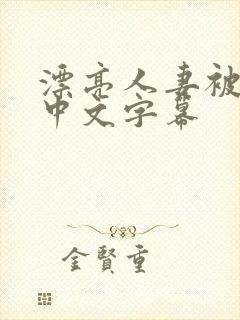 漂亮人妻被
中文字幕
金賢重